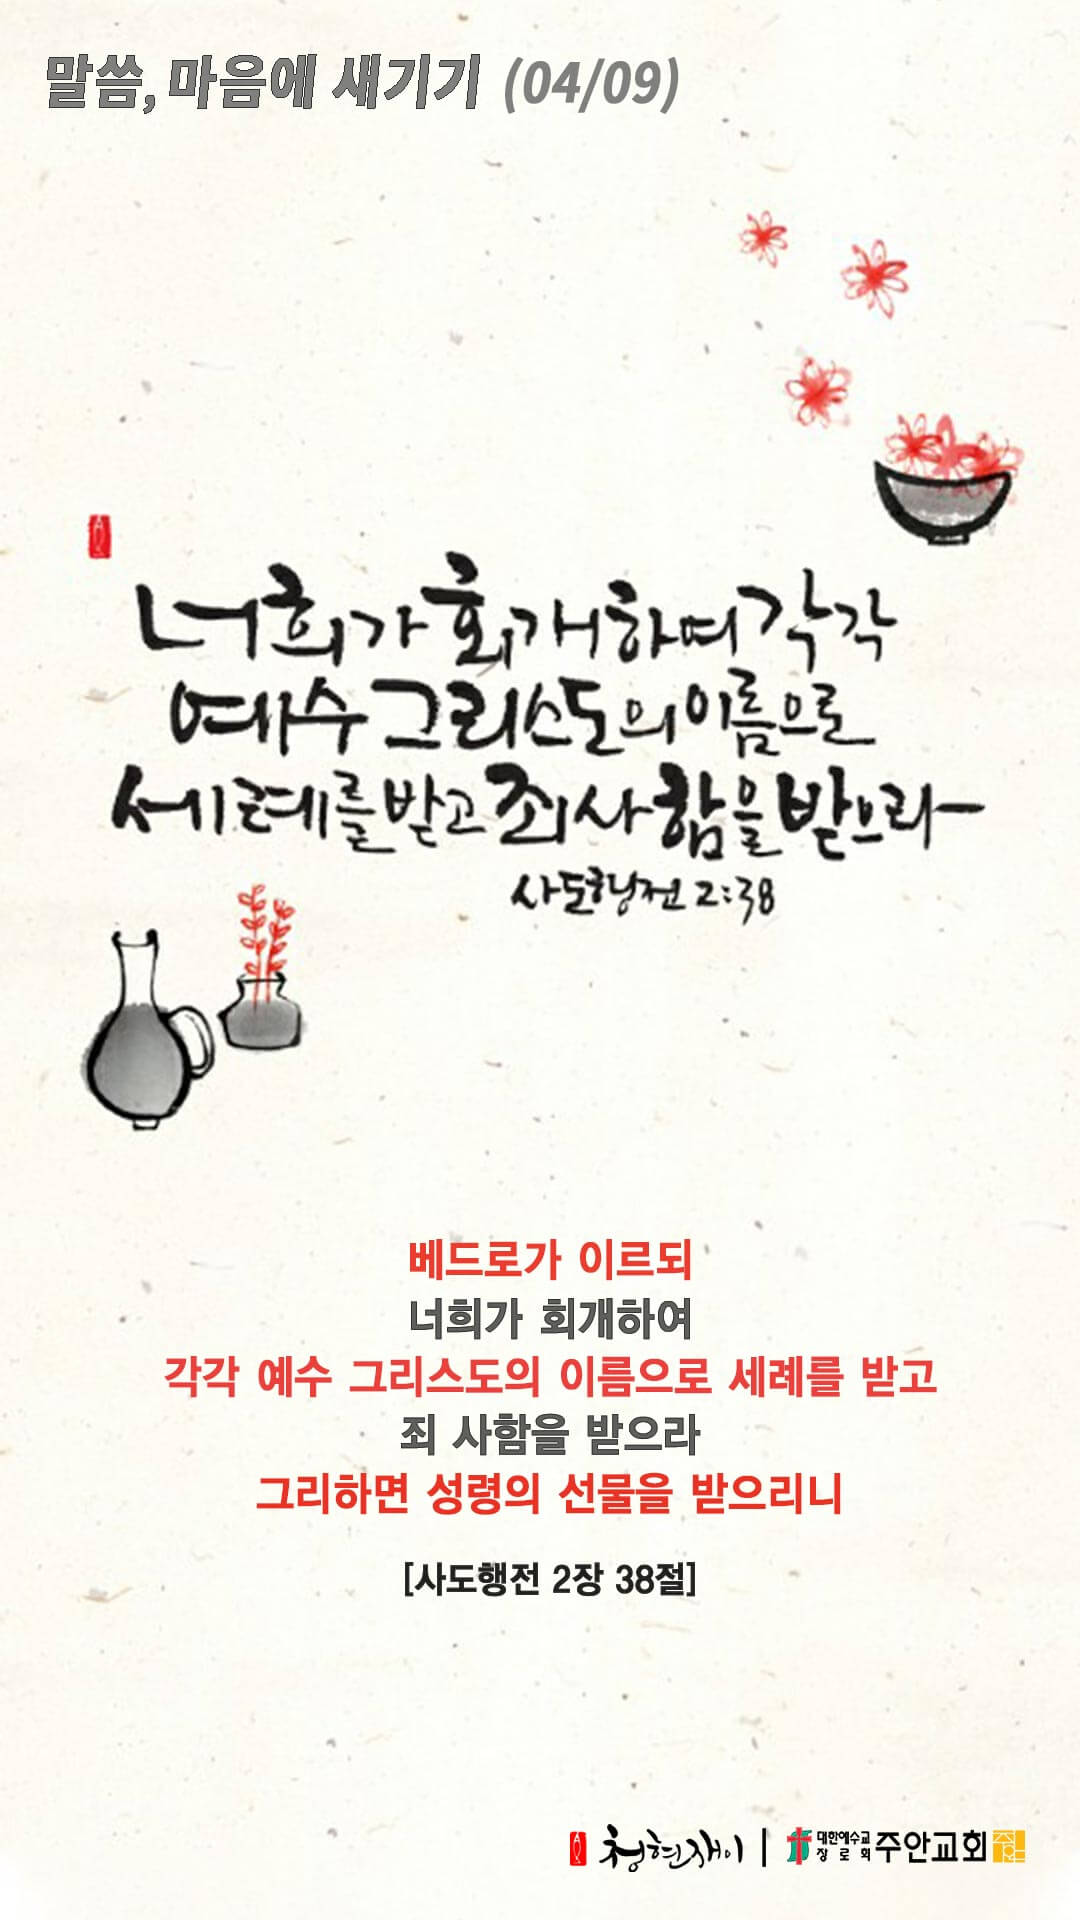 말씀, 마음에 새기기 (04/09)
너희가 회개하여 각각
예수 그리스도의 이름으로
세례를 받고 죄 사함을 받으라
사도행전 2:38
베드로가 이르되
너희가 회개하여
각각 예수 그리스도의 이름으로 세례를 받고
죄 사함을 받으라
그리하면 성령의 선물을 받으리니
[사도행전 2장 38절]
청현재이 | 대한예수교 장로회 주안교회